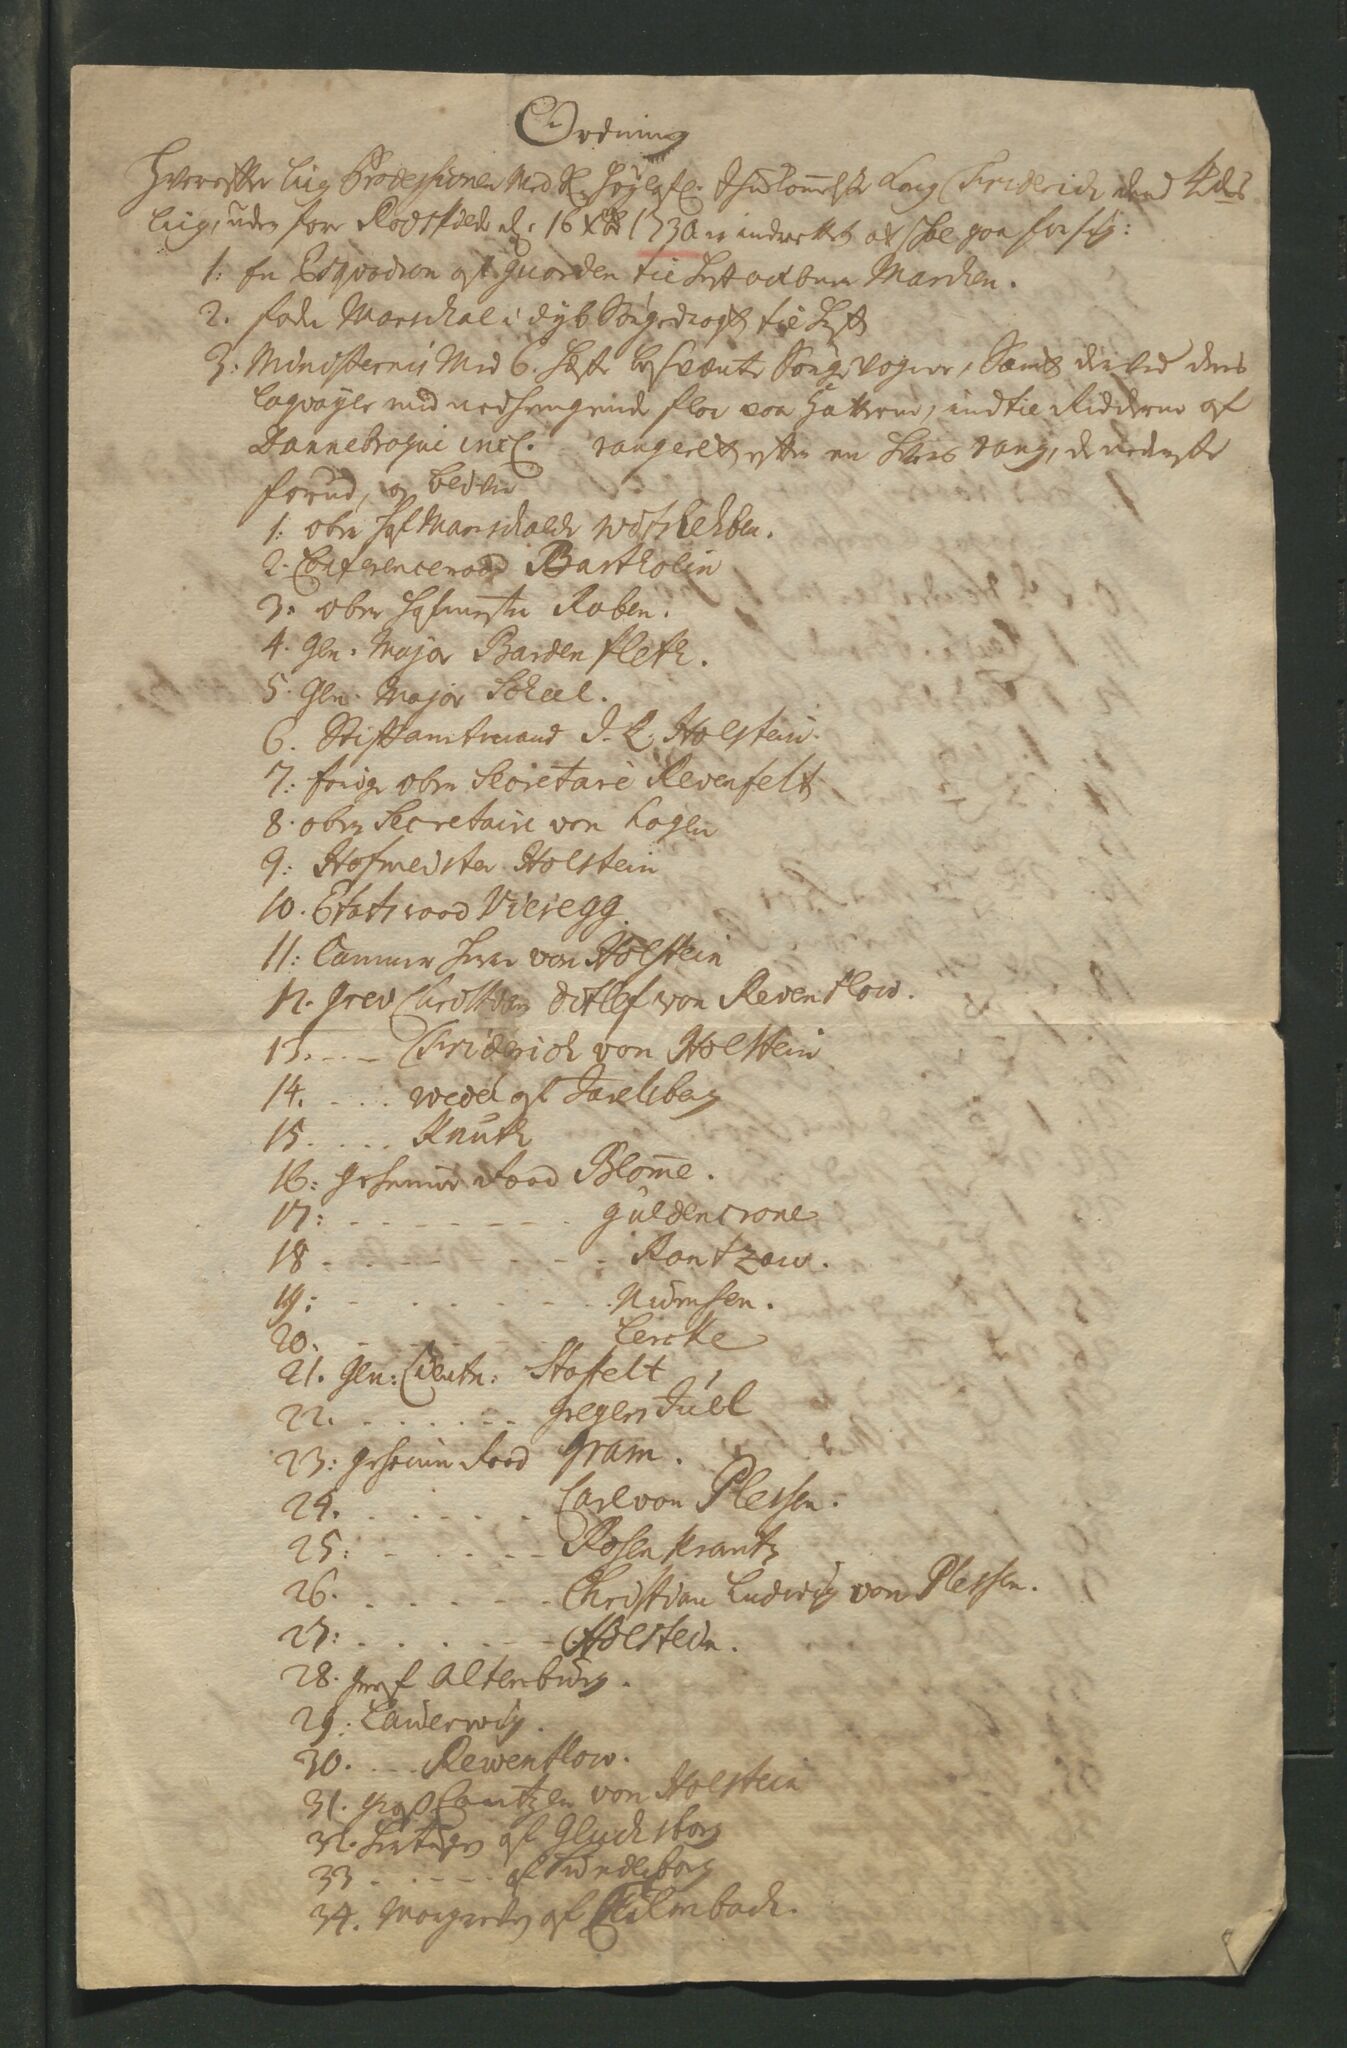 Ordning
Hvorefter Liig Processionen Med Høylofl: Ihukommelse Kong Friderich dend 4des
Liig, uden for Roeskilde d. 16 Xbr 1730 er indrettet at skee paa
1: En Esqvadron af Guarden til Hest aabner Marchen.
2. Marschal i dyb Sørgedragt til Hest
3: Ministerne Med 6. Heste Sørge vogne, Samt ved deres
Laqvayer med nedhengende flor paa Hattene, indtil Ridderne af
Dannebroge incl. rangeret efter en hvers rang, de nederste
forud, og blever
1: ober Hof Marschalck
2. Conferenceraad Bartholin
3: ober Hofmester Raben.
4. Gen. Major Bardenfleth.
5. Gen. Major Scheel.
6. Stiftamtmand J. L. Holstein.
7: forige ober Secretaire Revenfelt
8. ober Secretaire von Hagen
9: Hofmeister Holstein
10. Etatsraad Vieregg
11: Cammer Herre von Holstein
12. Grev Christian Ditlef von Reventlow.
13. - - - Friderich von Holstein
14. - - - Wedel af Jarlsberg
15. - - - Knuth
16: Geheime Raad Blome.
17: - - - - - - - Güldencrone
18 - - - - - - - Rantzow.
19: - - - - - - - Nümsen.
20. - - - - - - - Lercke
21. Gen: Lieutn: Staffelt
22. - - - - - - Gregers Juel
23: Geheime Raad Gram.
24. - - - - - - Carl von Plessen.
25: - - - - - - Rosenkrantz
26. - - - - - - Christian Ludwig von Plessen.
27: - - - - - - Holstein.
28. Gref Altenburg.
29: Laüerwig.
30. - - - Rewentlow.
31. Gros Cantzler von Holstein
32. Hertugen af Glücksborg
33 - - - - - af Sunderborg
34. Margreven af Cülmbach.